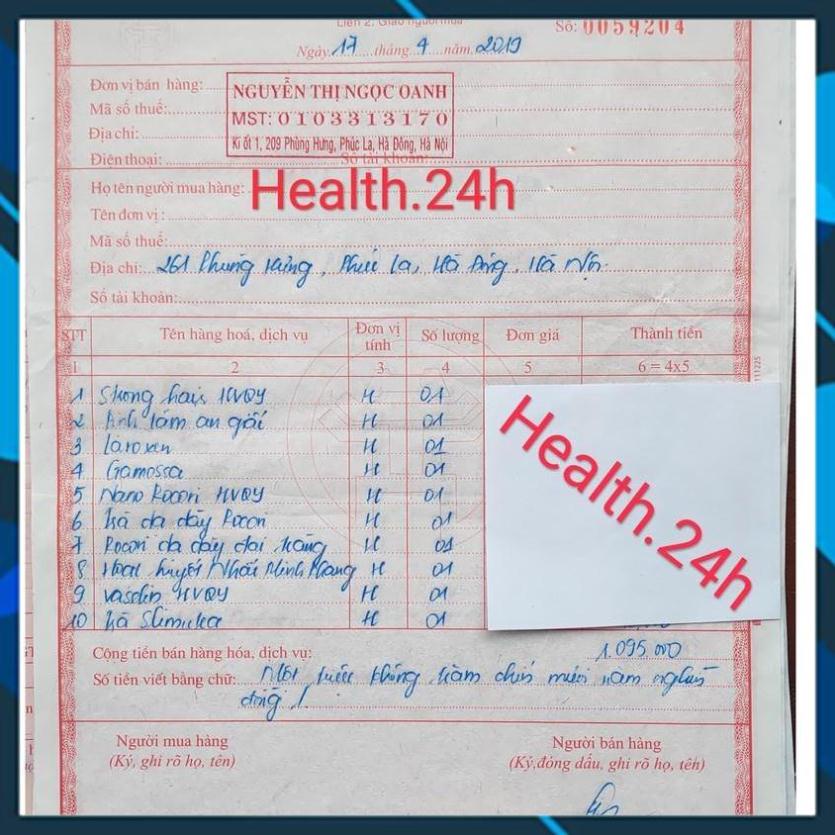 Liên 2: Giao người mua
Số: 0059204
Ngày 17 tháng 4 năm 2019
Đơn vị bán hàng:
NGUYỄN THỊ NGỌC OANH
Mã số thuế:
MST: 0103313170
Địa chỉ:
Ki ốt 1, 209 Phùng Hưng, Phúc La, Hà Đông, Hà Nội
Điện thoại: Số tài khoản:
Họ tên người mua hàng:
Health.24h
Tên đơn vị:
Mã số thuế:
Địa chỉ: 261 Phùng Hưng, Phúc La, Hà Đông, Hà Nội
Số tài khoản:
STT Tên hàng hoá, dịch vụ Đơn vị tính Số lượng Đơn giá Thành tiền
1 2 3 4 5 6 = 4x5
1 Strong hair HVQY H 01
2 Anh tâm an H 01
3 H 01
4 Gamossa H 01
5 Nano Rocori HVQY H 01
6 trà dạ dày Rocori H 01
7 Rocori dạ dày đại tràng H 01
8 Hoạt huyết Nhất Minh Khang H 01
9 HVQY H 01
10 trà Slimuka H 01
Health.24h
Cộng tiền bán hàng hóa, dịch vụ: 1.095.000
Số tiền viết bằng chữ: Một triệu không trăm chín mươi năm nghìn
đồng /.
Người mua hàng Người bán hàng
(Ký, ghi rõ họ, tên) (Ký,đóng dấu, ghi rõ họ, tên)